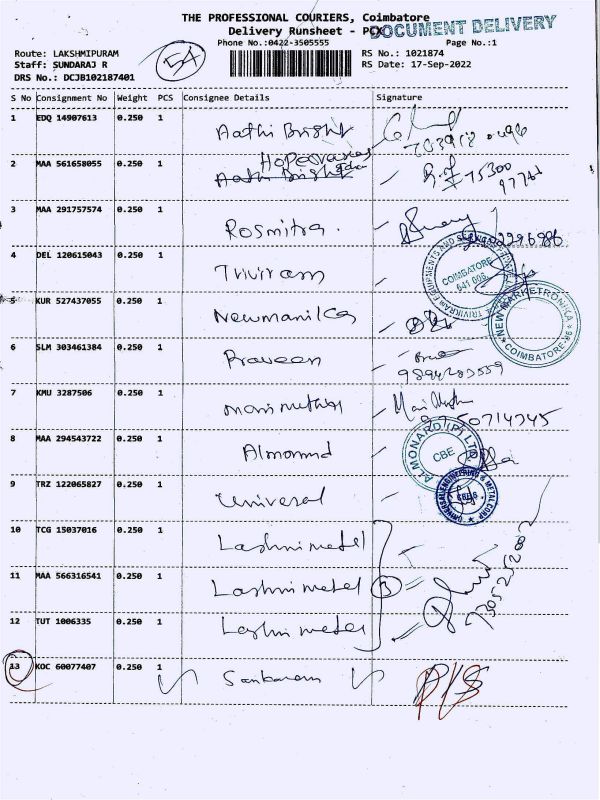 THE PROFESSIONAL COURIERS, Coimbatore
Delivery Runsheet - PCX
DOCUMENT DELIVERY
Phone No.:0422-3505555
Page No.:1
Route: LAKSHMIPURAM
RS No.: 1021874
Staff: SUNDARAJ R
RS Date: 17-Sep-2022
DRS No.: DCJB102187401
54
S No Consignment No Weight PCS Consignee Details Signature
1 EDQ 14907613 0.250 1 Aathi Bright
2 MAA 561658055 0.250 1
3 MAA 291757574 0.250 1 Rosmitra.
4 DEL 120615043 0.250 1 Triviram
COIMBATORE 641 006.
5 KUR 527437055 0.250 1 Newmanika
NEW MARKETRONICA
COIMBATORE-96
6 SLM 303461384 0.250 1 Praveen
7 KMU 3287506 0.250 1 marimuthu
8 MAA 294543722 0.250 1 Almonnd
ALMONARD (P) LTD. CBE
9 TRZ 122065827 0.250 1 Universal
UNIVERSAL ENGINEERING & METAL CORP CBE-6
10 TCG 15037016 0.250 1 Lashmi metal
11 MAA 566316541 0.250 1 Lashmi metal 3
12 TUT 1006335 0.250 1 Lashmi metal
13 KOC 60077407 0.250 1 Sankaram